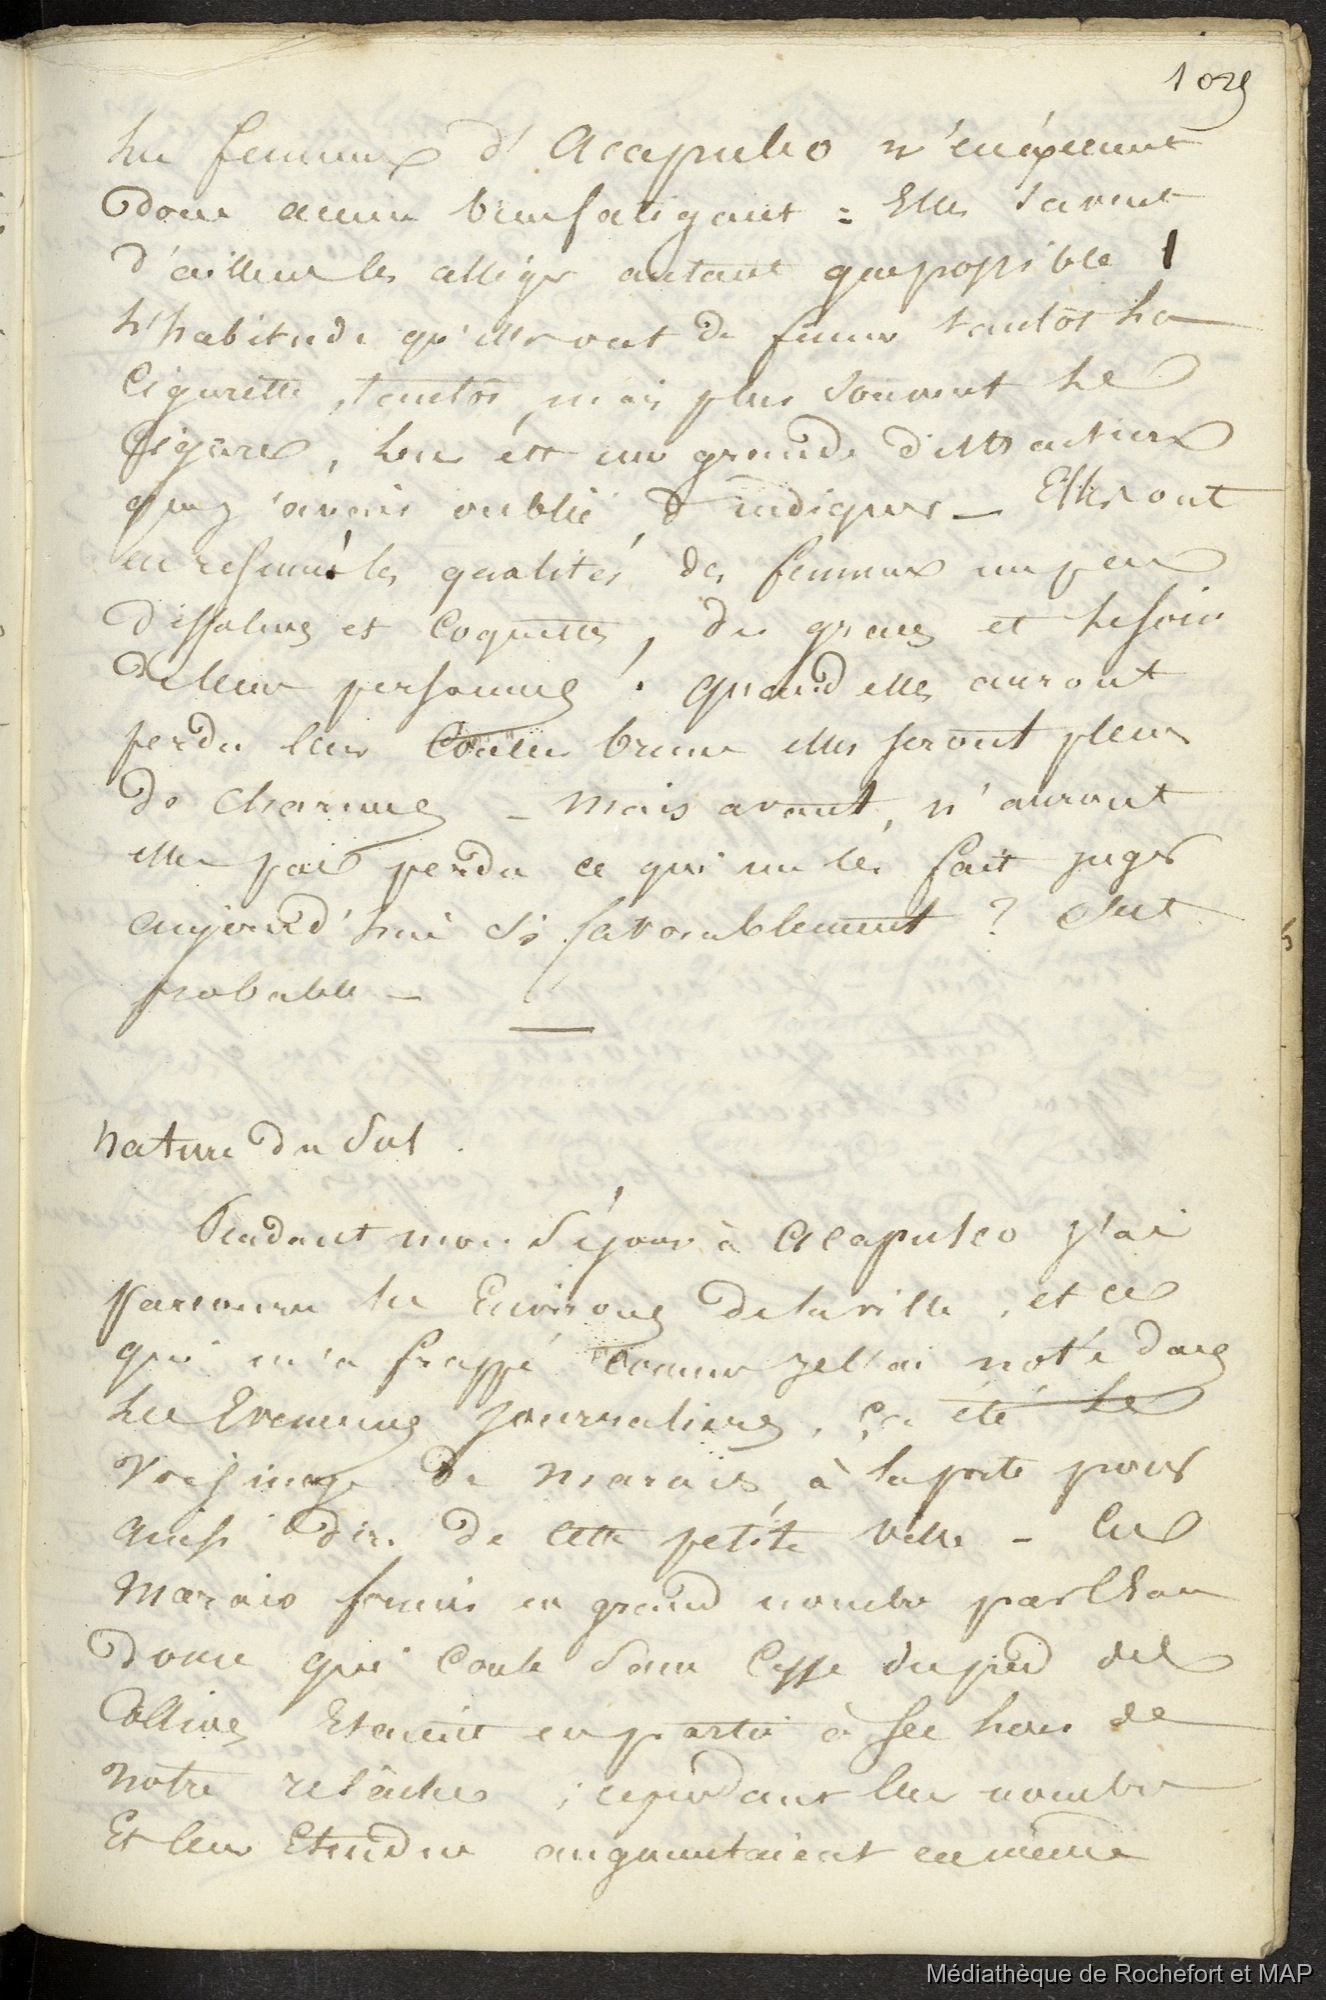 1029
les femmes d'Acapulco n'en exercent
donc aucun bien fatigant = Elles savent
d'ailleurs les alléger autant que possible
L'habitude qu'elles ont de fumer tantôt la
Cigarette, tantôt, mais plus souvent le
Cigare, leur est une grande distraction
que j'avais oublié d'indiquer _ Elles ont
en resumé les qualités des femmes un peu
dissolues et coquettes, des graces et le soin
de leur personne. quand elles auront
perdu leur couleur brune elles seront pleines
de charmes _ mais avant, n'auront
elles pas perdu ce qui me les fait juger
aujourd'hui si favorablement ? C'est
probable _
Nature du Sol.
Pendant mon séjour à Acapulco j'ai
parcouru les Environs de la ville, et ce
qui m'a frappé comme je l'ai noté dans
les Evenemens journaliers, ça été le
voisinage de marais à la porte pour
ainsi dire de cette petite ville _ Ces
marais formés en grand nombre par l'Eau
douce qui coule sans cesse du pied des
Collines Etaient en partie à sec lors de
notre relâche ; cependant leur nombre
Et leur Etendue augmentaient en même
Médiathèque de Rochefort et MAP